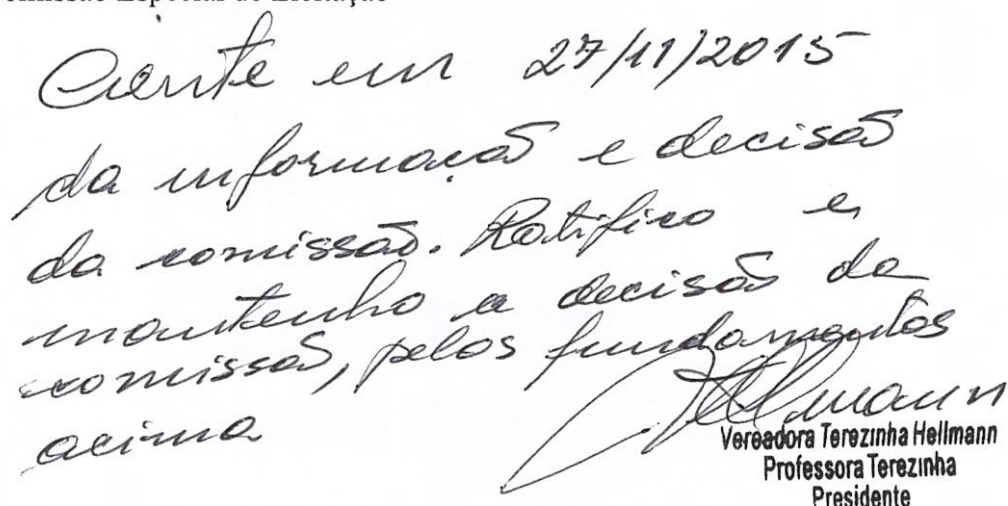 omissão Especial de Licitação
Ciente em 27/11/2015
da informação e decisão
da comissão. Ratifico e
mantenho a decisão da
comissão, pelos fundamentos
acima
Hellmann
Vereadora Terezinha Hellmann
Professora Terezinha
Presidente